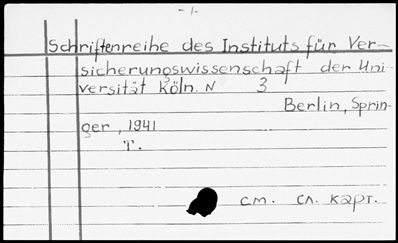 - 1 -
Schriftenreihe des Instituts für Ver-
sicherungswissenschaft der Uni-
versität Köln. N 3
Berlin, Sprin-
ger, 1941
T.
см. сл. карт.